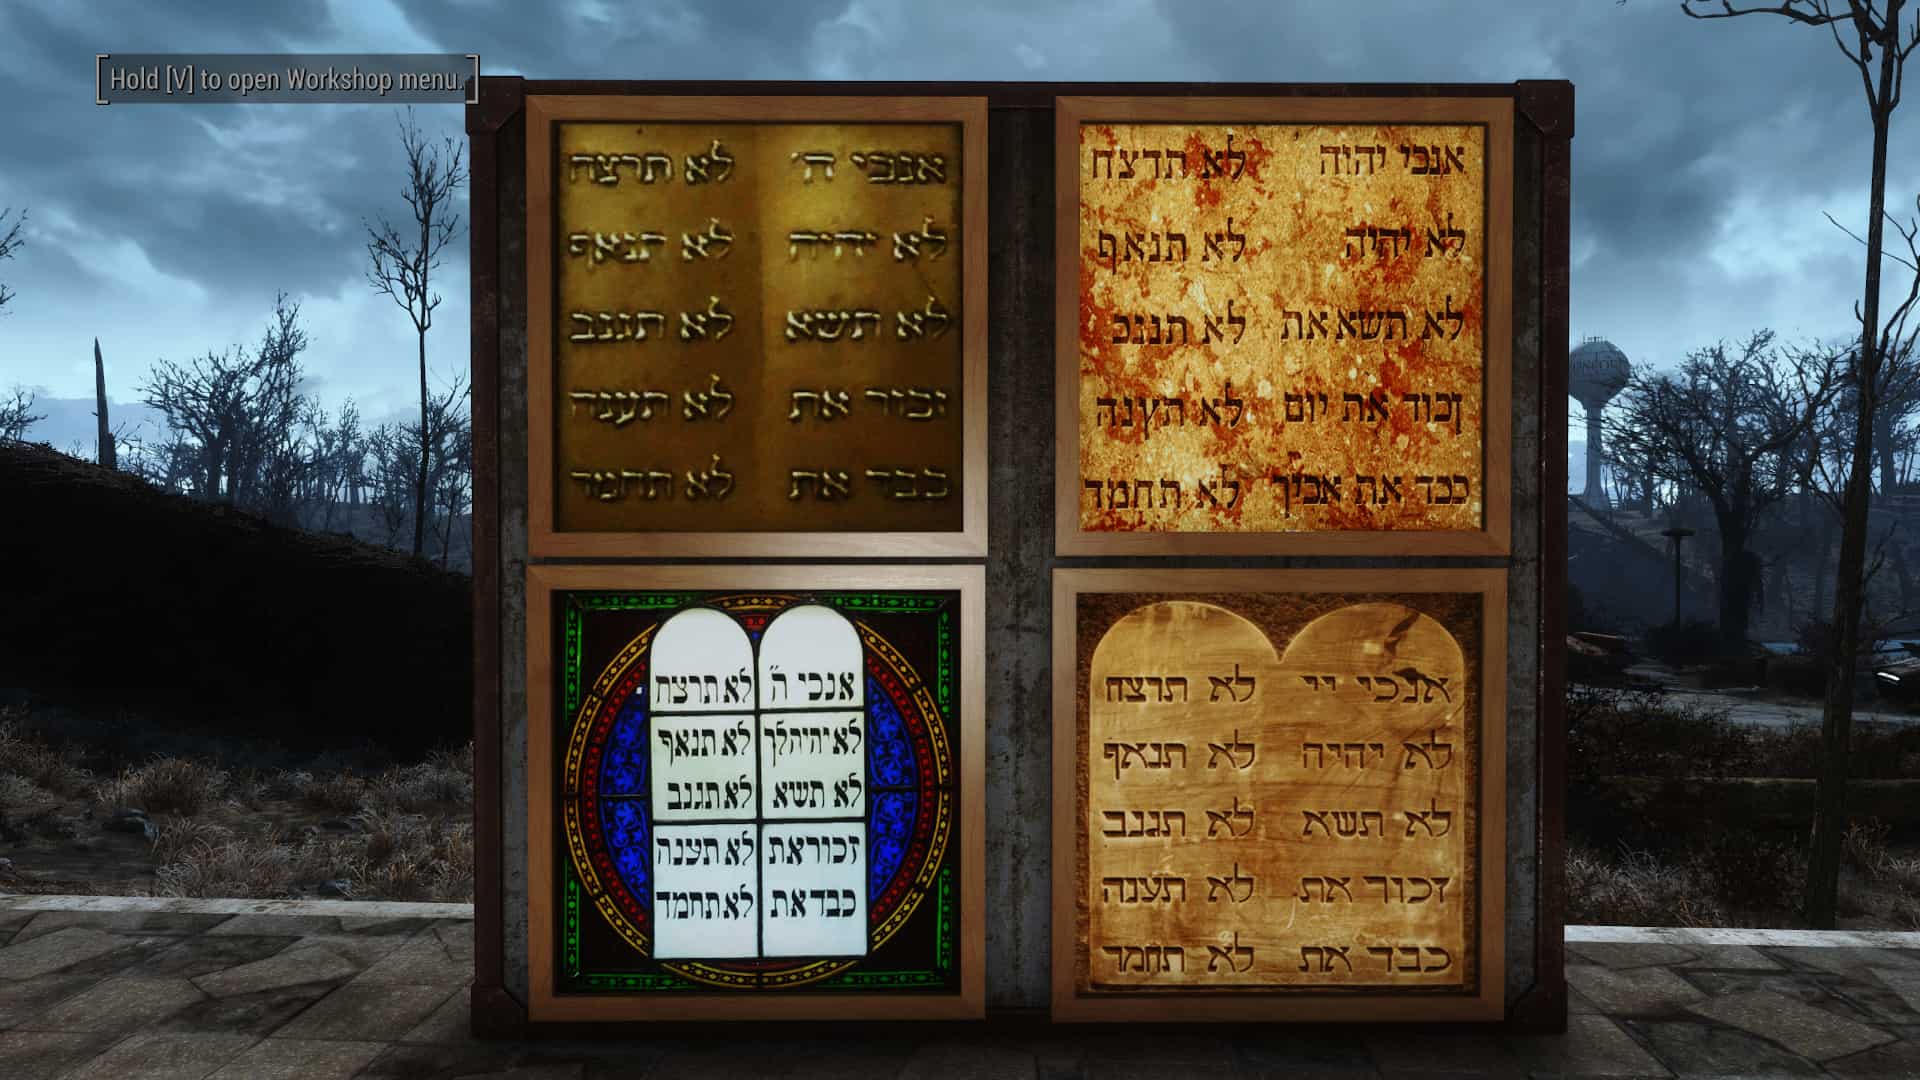 Hold [V] to open Workshop menu.
אנכי ה'
לא יהיה
לא תשא
זכור את
כבד את
לא תרצח
לא תנאף
לא תגנב
לא תענה
לא תחמד
אנכי יהוה
לא יהיה
לא תשא את
ןכוד את יום
ככד את אכיך
לא תדצח
לא תנאף
לא תננכ
לא תץנה
לא תחמד
אנכי ה"
לא יהיה לך
לא תשא
זכור את
כבד את
לא תרצח
לא תנאף
לא תגנב
לא תענה
לא תחמד
אנכי יי
לא יהיה
לא תשא
זכור את
כבד את
לא תרצח
לא תנאף
לא תגנב
לא תענה
לא תחמד